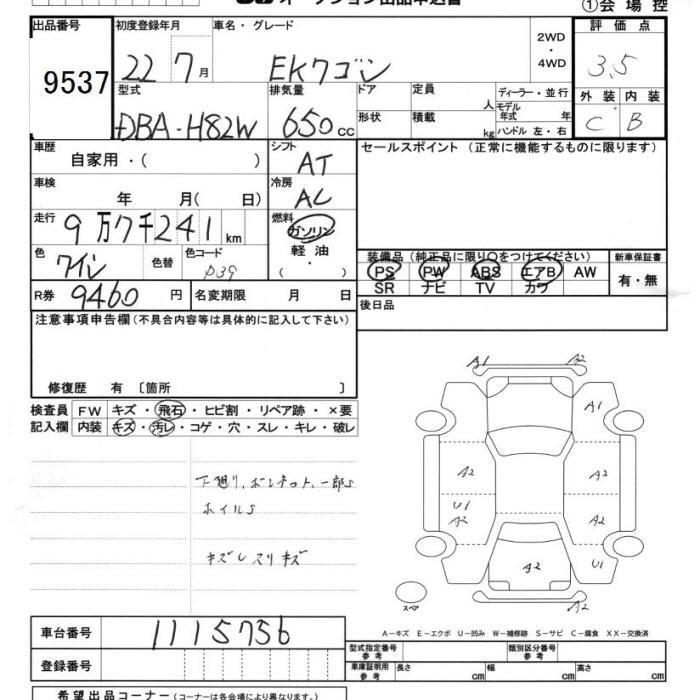 ①会場控
出品番号 初度登録年月 車名・グレード 2WD・4WD 評価点
9537 22 7月 EKワゴン 3.5
型式 排気量 ドア 定員 人 ディーラー・並行 外装 内装
DBA-H82W 650cc 形状 積載 kg モデル年式 年 ハンドル 左・右 C B
車歴 自家用・( ) シフト AT セールスポイント (正常に機能するものに限ります)
車検 年 月( 日) 冷房 AC
走行 9万7千241km 燃料 ガソリン・軽油・( )
色 ワイン 色替 色コード P39 装備品 (純正品に限り○をつけてください) 新車保証書
PS PW ABS エアB AW 有・無
SR ナビ TV カワ
R券 9460円 名変期限 月 日 後日品
注意事項申告欄 (不具合内容等は具体的に記入して下さい)
修復歴 有 [箇所 ]
検査員記入欄 FW キズ・飛石・ヒビ割・リペア跡・×要
内装 キズ・汚レ・コゲ・穴・スレ・キレ・破レ
A1 A2
A1
下廻り、ボンネット、一部S
A2 A2
ホイルS
U1 A2 A2
キズレスリキズ
A2 U1
スペア A2
A−キズ E−エクボ U−凹み W−補修跡 S−サビ C−腐食 XX−交換済
車台番号 1115756
型式指定番号 参考 類別区分番号 参考
登録番号 車庫証明用 参考 長さ cm 幅 cm 高さ cm
希望出品コーナー (コーナーは各会場により異なります。)